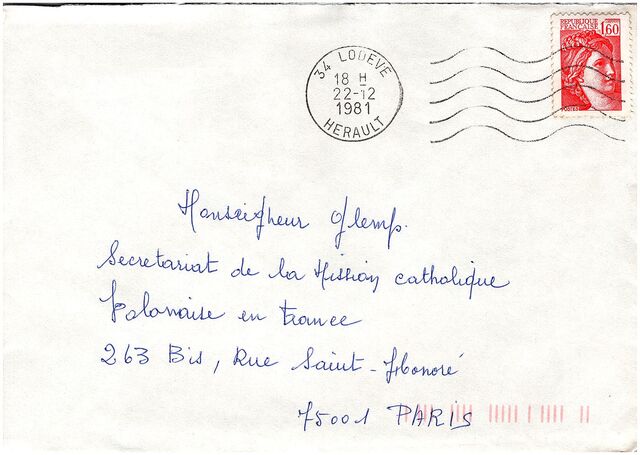 REPUBLIQUE
FRANÇAISE 1,60
34 LODEVE
18 H
22-12
1981
HERAULT
Monseigneur Glemp.
Secretariat de la Mission catholique
Polonaise en France
263 Bis, Rue Saint-Honoré
75001 PARIS